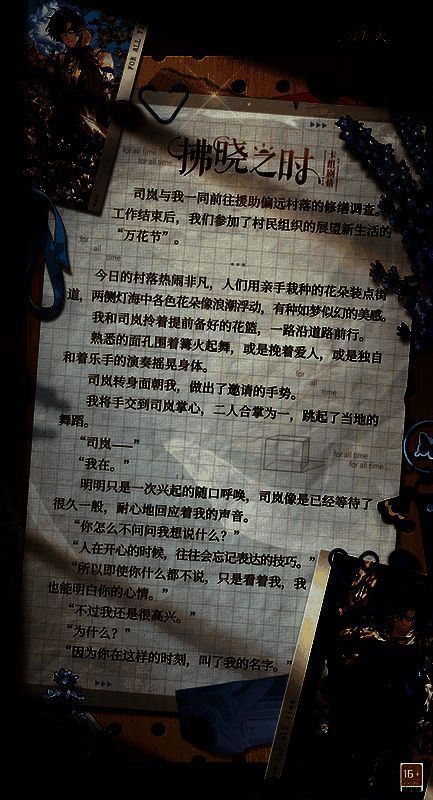 FOR ALL TI
拂晓之时
卡组剧情
for all time
for all time
司岚与我一同前往援助偏远村落的修缮调查。
工作结束后，我们参加了村民组织的展望新生活的
“万花节”。
for
all
time
今日的村落热闹非凡，人们用亲手栽种的花朵装点街
道，两侧灯海中各色花朵像浪潮浮动，有种如梦似幻的美感。
我和司岚拎着提前备好的花篮，一路沿道路前行。
熟悉的面孔围着篝火起舞，或是挽着爱人，或是独自
和着乐手的演奏摇晃身体。
for
all
time
司岚转身面朝我，做出了邀请的手势。
我将手交到司岚掌心，二人合掌为一，跳起了当地的
舞蹈。
“司岚——”
for all time
for all time
“我在。”
明明只是一次兴起的随口呼唤，司岚像是已经等待了
很久一般，耐心地回应着我的声音。
“你怎么不问问我想说什么？”
“人在开心的时候，往往会忘记表达的技巧。”
“所以即使你什么都不说，只是看着我，我
也能明白你的心情。”
“不过我还是很高兴。”
“为什么？”
“因为你在这样的时刻，叫了我的名字。”
16+